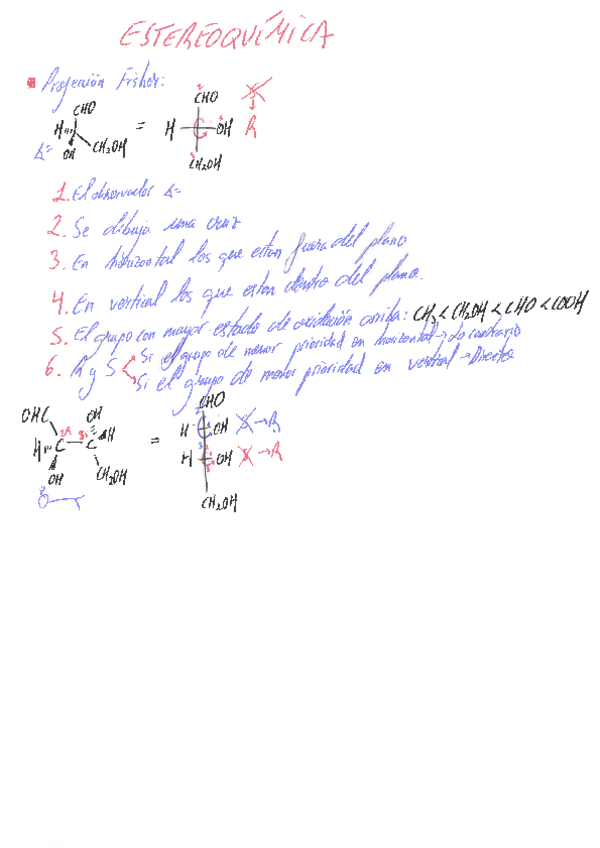 ESTEREOQUÍMICA
Proyección Fisher:
CHO
H
OH
CH₂OH
=
2
CHO
H
OH
1
3
CH₂OH
S
R
1. El observador
2. Se dibuja una cruz
3. En horizontal los que estan fuera del plano
4. En vertical los que estan dentro del plano.
5. El grupo con mayor estado de oxidación arriba: CH₃ < CH₂OH < CHO < COOH
6. R y S
Si el grupo de menor prioridad en horizontal → Lo contrario
Si el grupo de menor prioridad en vertical → Directo
OHC
OH
H
C
C
H
OH
CH₂OH
=
CHO
H
OH
S → R
H
OH
S → R
CH₂OH